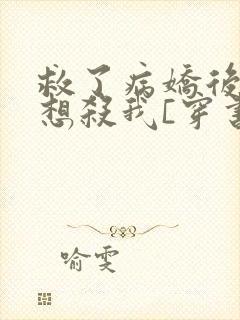 救了病嬌後
想殺我[穿書
喻雯